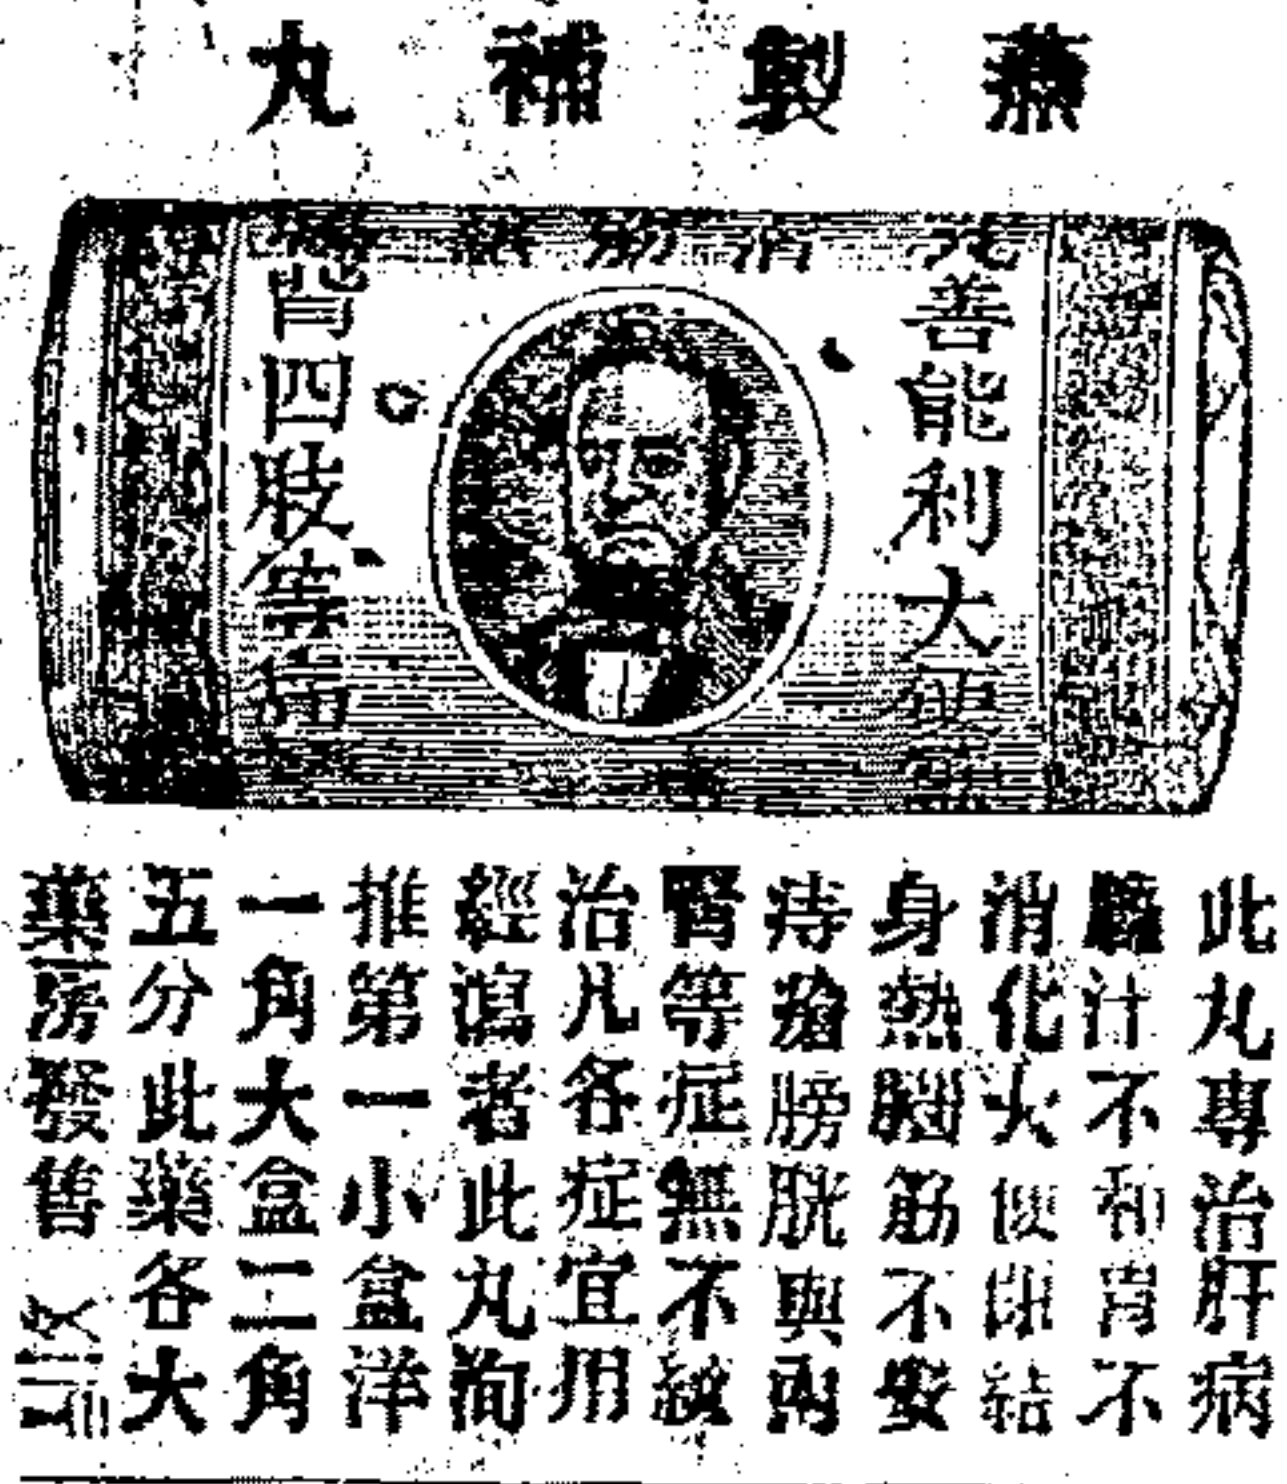 燕製補丸
丸善能利大便
消
背四肢等
此丸專治肝病
膽汁不和胃不
消化大便閉結
身熱腦筋不安
痔瘡膀胱與內
腎等症無不統
治凡各症宜用
經瀉者此丸洵
推第一小盒洋
一角大盒二角
五分此藥各大
藥房發售